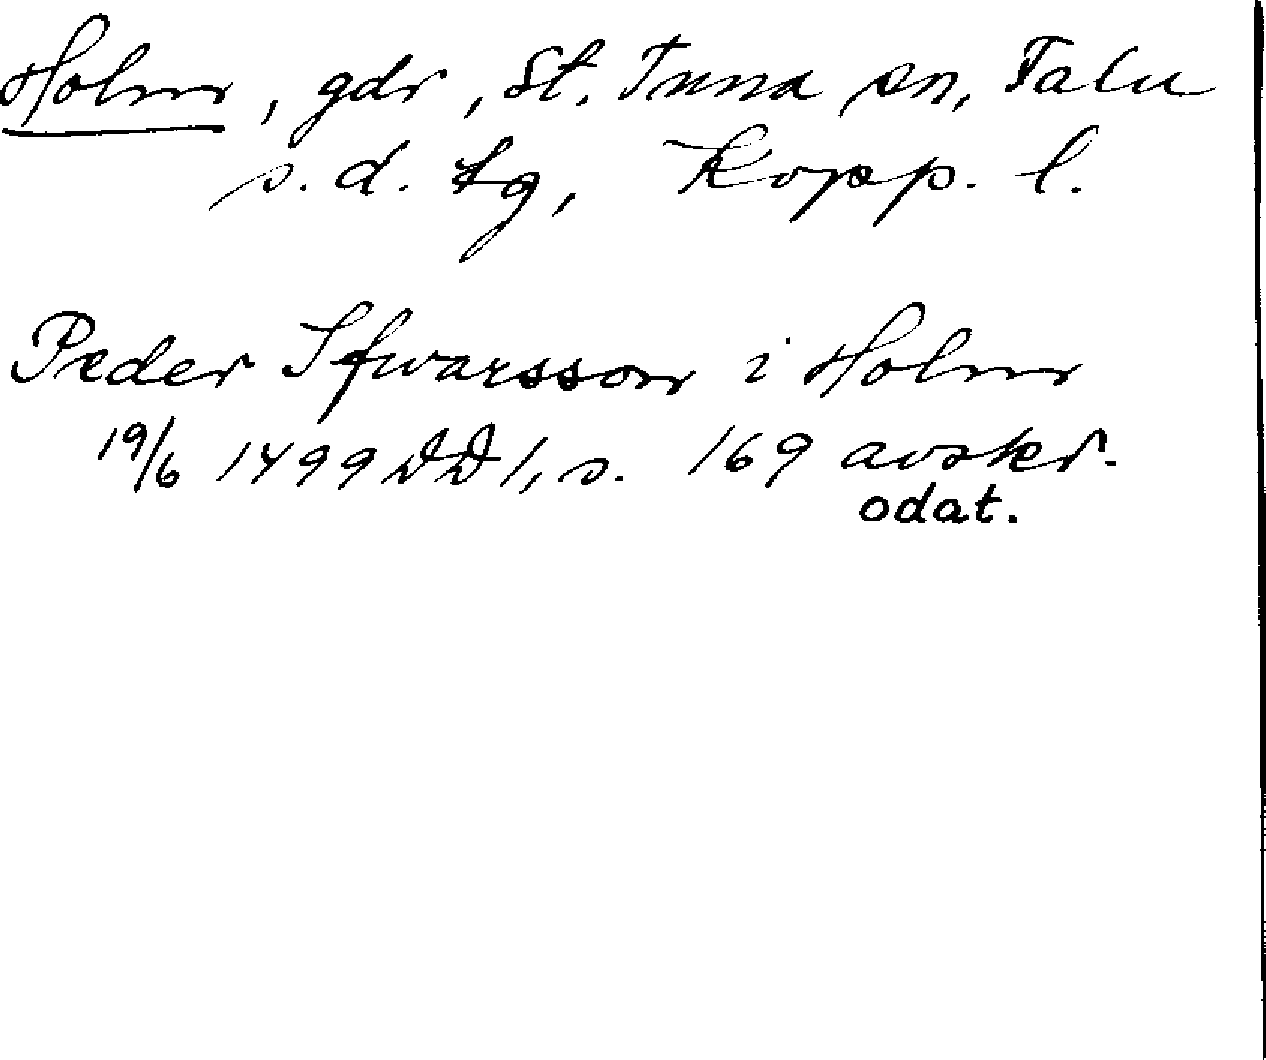 Holm, gdr, St. Tuna sn, Falu
s. d. tg, Kopp. l.
Peder Ifwarsson i Holm
19/6 1499 DD 1, s. 169 avskr.
odat.